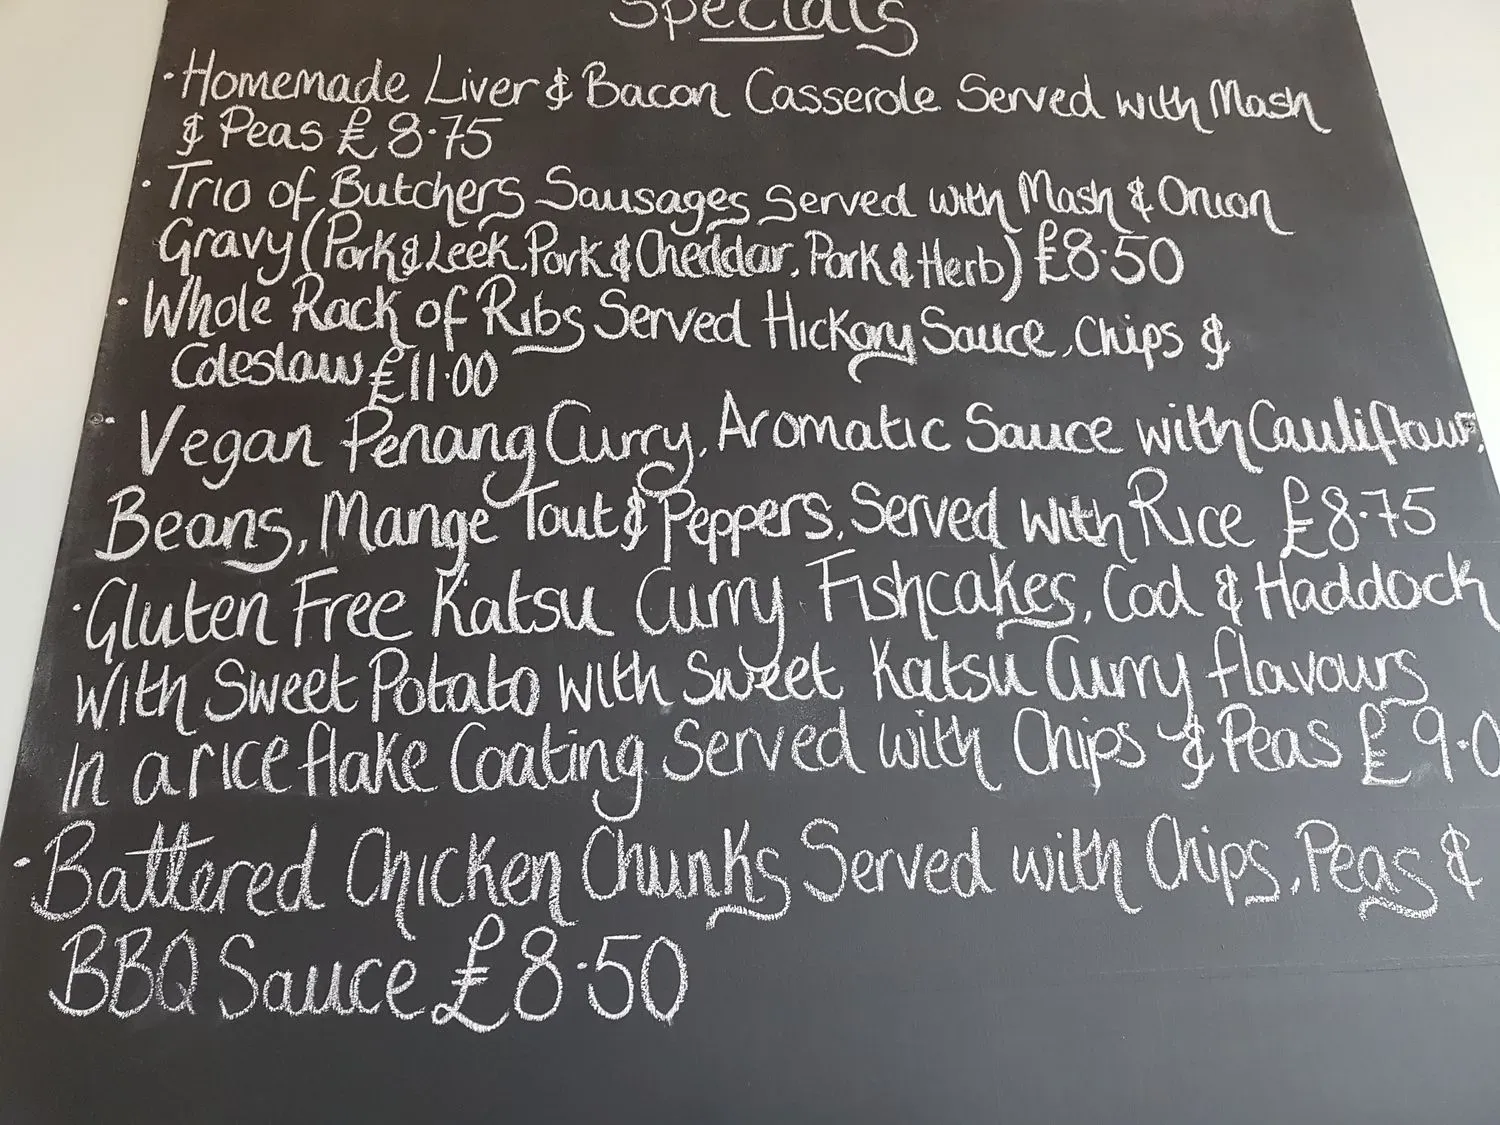 Specials
· Homemade Liver & Bacon Casserole Served with Mash
& Peas £8.75
· Trio of Butchers Sausages Served with Mash & Onion
Gravy (Pork & Leek, Pork & Cheddar, Pork & Herb) £8.50
· Whole Rack of Ribs Served Hickory Sauce, Chips &
Coleslaw £11.00
· Vegan Penang Curry, Aromatic Sauce with Cauliflower,
Beans, Mange Tout & Peppers, Served with Rice £8.75
· Gluten Free Katsu Curry Fishcakes, Cod & Haddock
With Sweet Potato with Sweet Katsu Curry flavours
In a rice flake Coating Served with Chips & Peas £9.0
· Battered Chicken Chunks Served with Chips, Peas &
BBQ Sauce £8.50